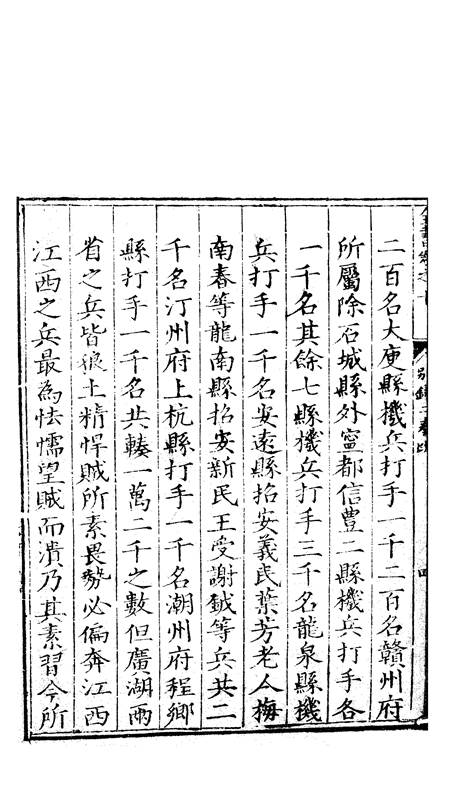 二百名大庾縣機兵打手一千二百名贛州府
所屬除石城縣外寧都信豊二縣機兵打手各
一千名其餘七縣機兵打手三千名龍泉縣機
兵打手一千名安遠縣招安義民葉芳老人梅
南春等龍南縣招安新民王受謝鉞等兵共二
千名汀州府上杭縣打手一千名潮州府程鄉
縣打手一千名共輳一萬二千之數但廣湖兩
省之兵皆狼土精悍賊所素畏勢必偏奔江西
江西之兵最為怯懦望賊而潰乃其素習今所